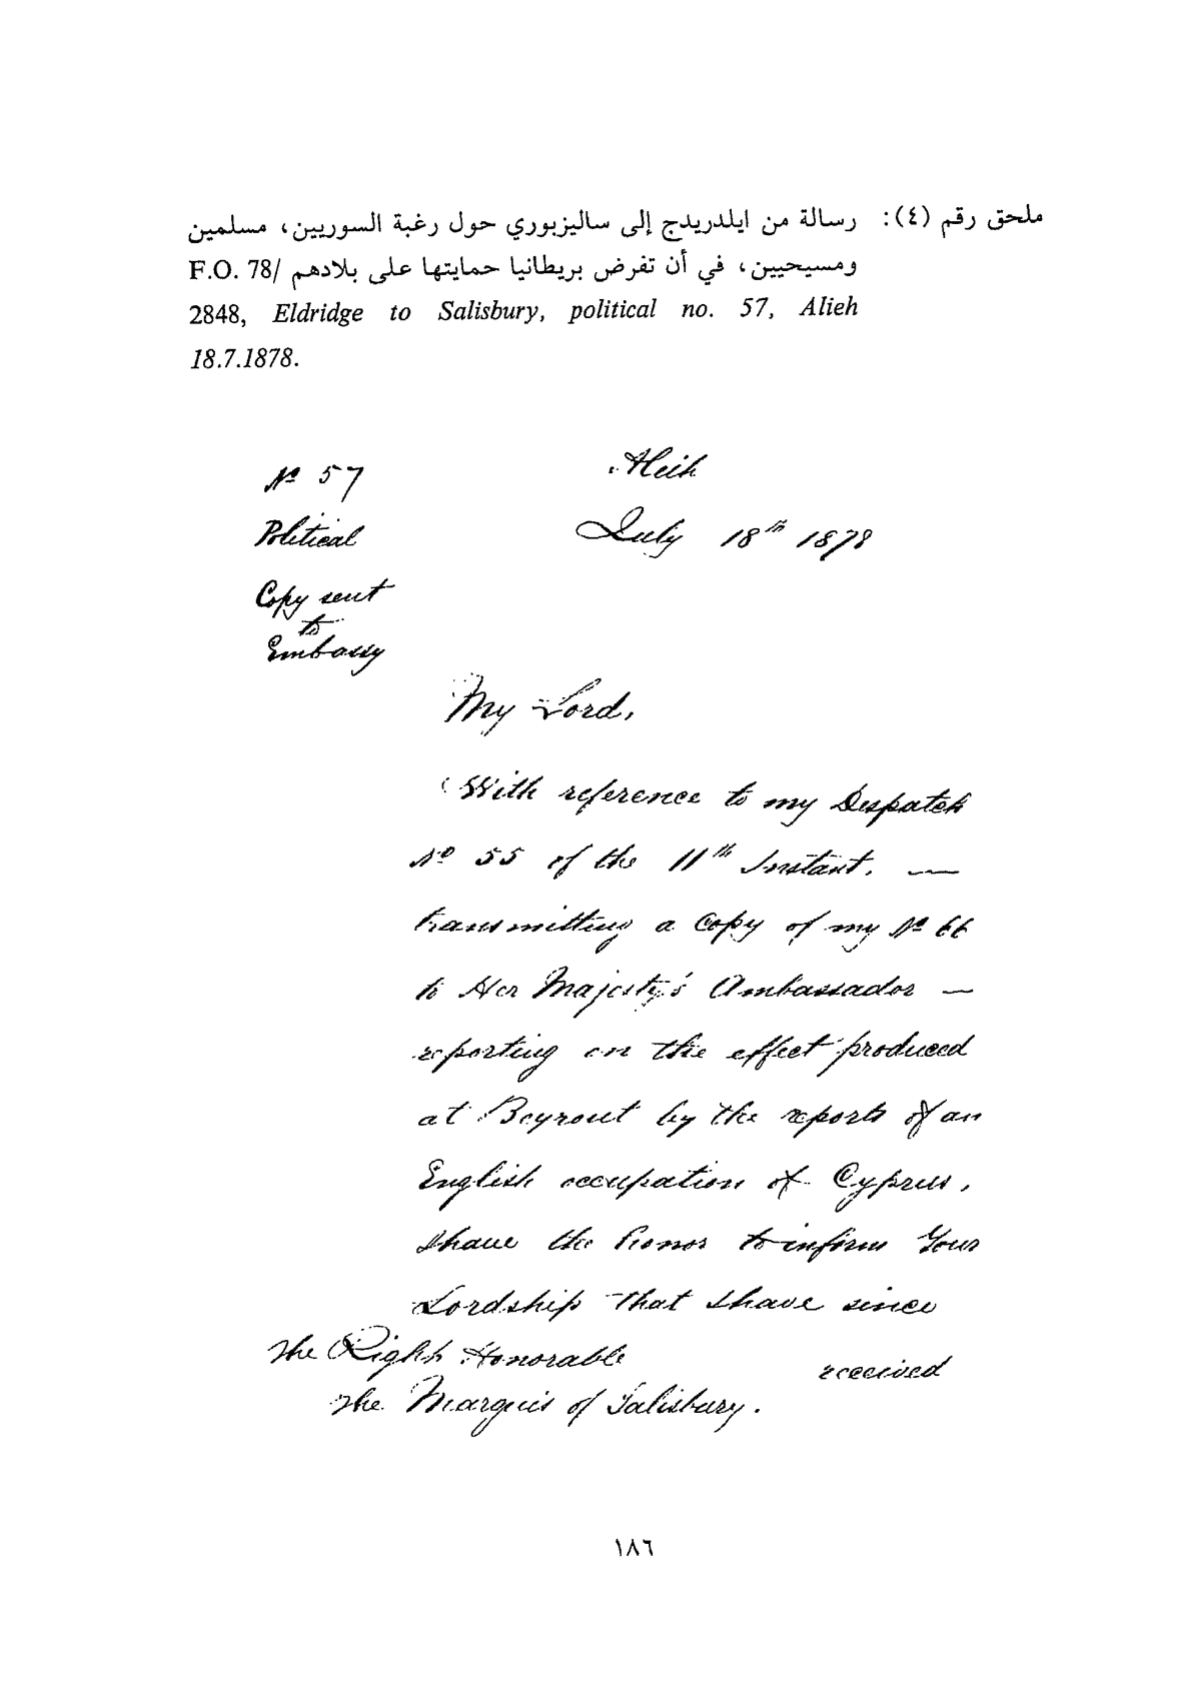 ملحق رقم (٤): رسالة من ايلدريدج إلى ساليزبوري حول رغبة السوريين، مسلمين
ومسيحيين، في أن تفرض بريطانيا حمايتها على بلادهم F.O. 78/
2848, Eldridge to Salisbury, political no. 57, Alieh
18.7.1878.
Nº 57
Aleih
Political
July 18th 1878
Copy sent
to
Embassy
My Lord,
With reference to my Despatch
Nº 55 of the 11th Instant. —
transmitting a Copy of my Nº 66
to Her Majesty's Ambassador —
reporting on the effect produced
at Beyrout by the reports of an
English occupation of Cyprus,
I have the honor to inform Your
Lordship that I have since
The Right Honorable
received
The Marquis of Salisbury.
١٨٦